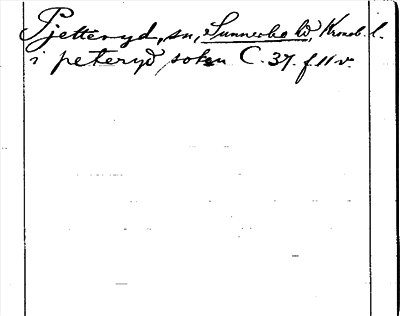 Pjetteryd, sn, Sunnerbo hd, Kronob. l.
i peteryd soken C. 37. f. 11 v.